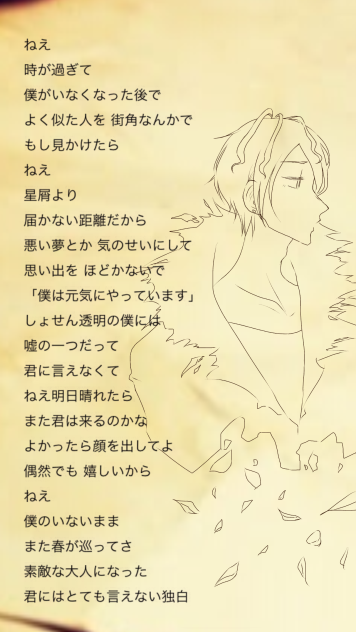 ねえ
時が過ぎて
僕がいなくなった後で
よく似た人を 街角なんかで
もし見かけたら
ねえ
星屑より
届かない距離だから
悪い夢とか 気のせいにして
思い出を ほどかないで
「僕は元気にやっています」
しょせん透明の僕には
嘘の一つだって
君に言えなくて
ねえ明日晴れたら
また君は来るのかな
よかったら顔を出してよ
偶然でも 嬉しいから
ねえ
僕のいないまま
また春が巡ってさ
素敵な大人になった
君にはとても言えない独白